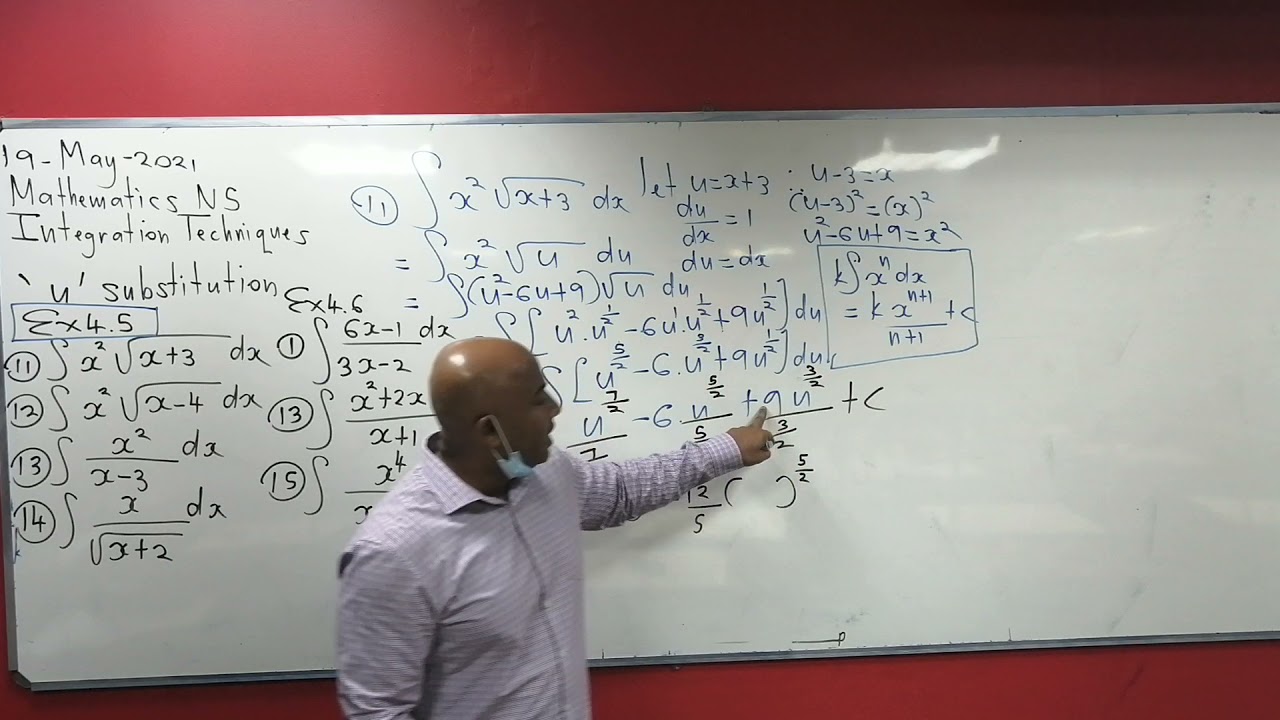 19-May-2021
Mathematics NS
Integration Techniques
'u' substitution
Ex4.5
⑪ ∫ x² √(x+3) dx
⑫ ∫ x² √(x-4) dx
⑬ ∫ x²/(x-3)
⑭ ∫ x/√(x+2) dx
Ex4.6
① ∫ (6x-1)/(3x-2) dx
⑬ ∫ (x²+2x)/(x+1)
⑮ ∫ x⁴
⑪ ∫ x² √(x+3) dx
= ∫ x² √u du
= ∫ (u²-6u+9)√u du
∫ [u².u^(1/2) -6u¹.u^(1/2) +9u^(1/2)] du
∫ [u^(5/2) -6.u^(3/2) +9u^(1/2)] du
u^(7/2)/7 -6 u^(5/2)/5 +9u^(3/2)/(3/2) +c
12/5 ( )^(5/2)
let u=x+3
du/dx = 1
du = dx
∴ u-3=x
(u-3)²=(x)²
u²-6u+9=x²
k∫xⁿ dx
= k x^(n+1)/(n+1) +c